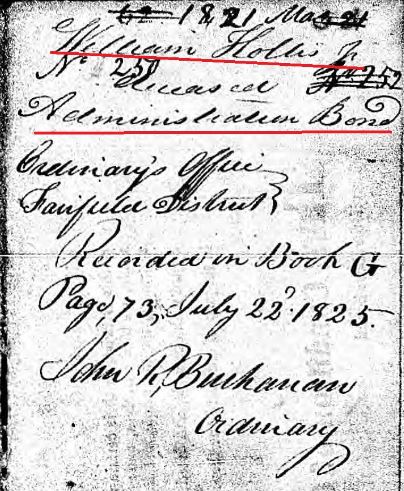 1821 May 21
William Hollis Jr
No 250 No 252
deceased
Administration Bond
Ordinary's Office
Fairfield District
Recorded in Book G
Page, 73, July 22d 1825.
John R, Buchanan
Ordinary